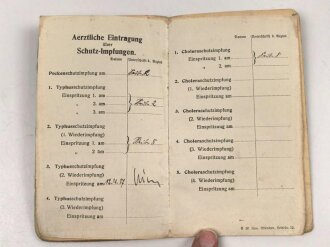 Aerztliche Eintragung
über
Schutz-Impfungen.
Datum Unterschrift d. Arztes
Pockenschutzimpfung am
1. Typhusschutzimpfung
Einspritzung 1. am
„ 2. am
„ 3. am
2. Typhusschutzimpfung
(1. Wiederimpfung)
Einspritzung 1. am
„ 2. am
3. Typhusschutzimpfung
(2. Wiederimpfung)
Einspritzung am
4. Typhusschutzimpfung
(3. Wiederimpfung)
Einspritzung am
Datum Unterschrift d. Arztes
1. Choleraschutzimpfung
Einspritzung 1. am
„ 2. am
2. Choleraschutzimpfung
(1. Wiederimpfung)
Einspritzung am
3. Choleraschutzimpfung
(2. Wiederimpfung)
Einspritzung am
4. Choleraschutzimpfung
(3. Wiederimpfung)
Einspritzung am
5. Choleraschutzimpfung
(4. Wiederimpfung)
Einspritzung am